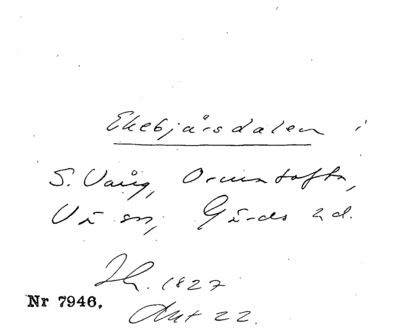 Ekebjärsdalen i
S. Vång, Ormatofta,
Vä sn, Gärds hd.
Lh. 1827
Akt 22.
Nr 7946.